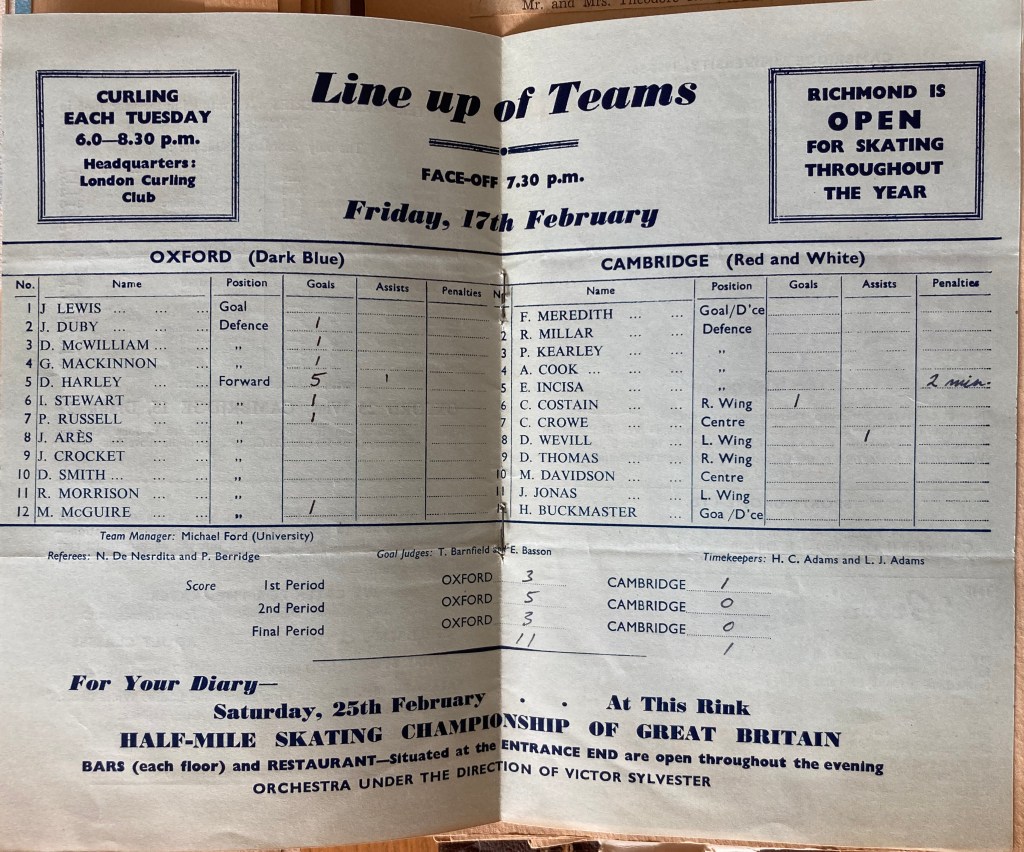 Mr. and Mrs. Theodore
CURLING
EACH TUESDAY
6.0—8.30 p.m.
Headquarters:
London Curling
Club
Line up of Teams
FACE-OFF 7.30 p.m.
Friday, 17th February
RICHMOND IS
OPEN
FOR SKATING
THROUGHOUT
THE YEAR
OXFORD (Dark Blue)
No. Name Position Goals Assists Penalties
1 J LEWIS ... ... ... Goal
2 J. DUBY ... ... ... Defence 1
3 D. McWILLIAM ... ... „ 1
4 G. MACKINNON ... „ 1
5 D. HARLEY ... ... Forward 5 1
6 I. STEWART ... ... „ 1
7 P. RUSSELL ... ... „ 1
8 J. ARÈS ... ... „
9 J. CROCKET ... ... „
10 D. SMITH ... ... „
11 R. MORRISON ... ... „
12 M. McGUIRE ... ... „ 1
CAMBRIDGE (Red and White)
Name Position Goals Assists Penalties
F. MEREDITH ... ... Goal/D'ce
2 R. MILLAR ... ... Defence
3 P. KEARLEY ... ... „
4 A. COOK ... ... ... „
5 E. INCISA ... ... „ 2 min.
6 C. COSTAIN ... ... R. Wing 1
7 C. CROWE ... ... Centre
8 D. WEVILL ... ... L. Wing 1
9 D. THOMAS ... ... R. Wing
10 M. DAVIDSON ... ... Centre
11 J. JONAS ... ... L. Wing
H. BUCKMASTER ... Goa /D'ce
Team Manager: Michael Ford (University)
Referees: N. De Nesrdita and P. Berridge Goal Judges: T. Barnfield and E. Basson Timekeepers: H. C. Adams and L. J. Adams
Score 1st Period OXFORD 3 CAMBRIDGE 1
2nd Period OXFORD 5 CAMBRIDGE 0
Final Period OXFORD 3 CAMBRIDGE 0
11 1
For Your Diary—
Saturday, 25th February . . At This Rink
HALF-MILE SKATING CHAMPIONSHIP OF GREAT BRITAIN
BARS (each floor) and RESTAURANT—Situated at the ENTRANCE END are open throughout the evening
ORCHESTRA UNDER THE DIRECTION OF VICTOR SYLVESTER